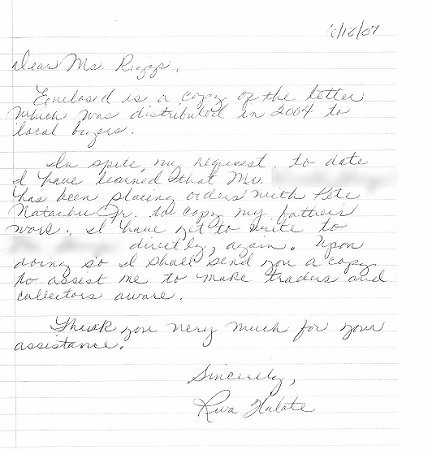 6/18/07
Dear Ms. Riggs,
Enclosed is a copy of the letter
which was distributed in 2004 to
local buyers.
In spite, my request, to date
I have learned that Mr.
has been placing orders with Pete
Natachu Jr. to copy my fathers
work. I have yet to write to
directly, again. Upon
doing so I shall send you a copy
to assist me to make traders and
collectors aware.
Thank you very much for your
assistance.
Sincerely,
Halate